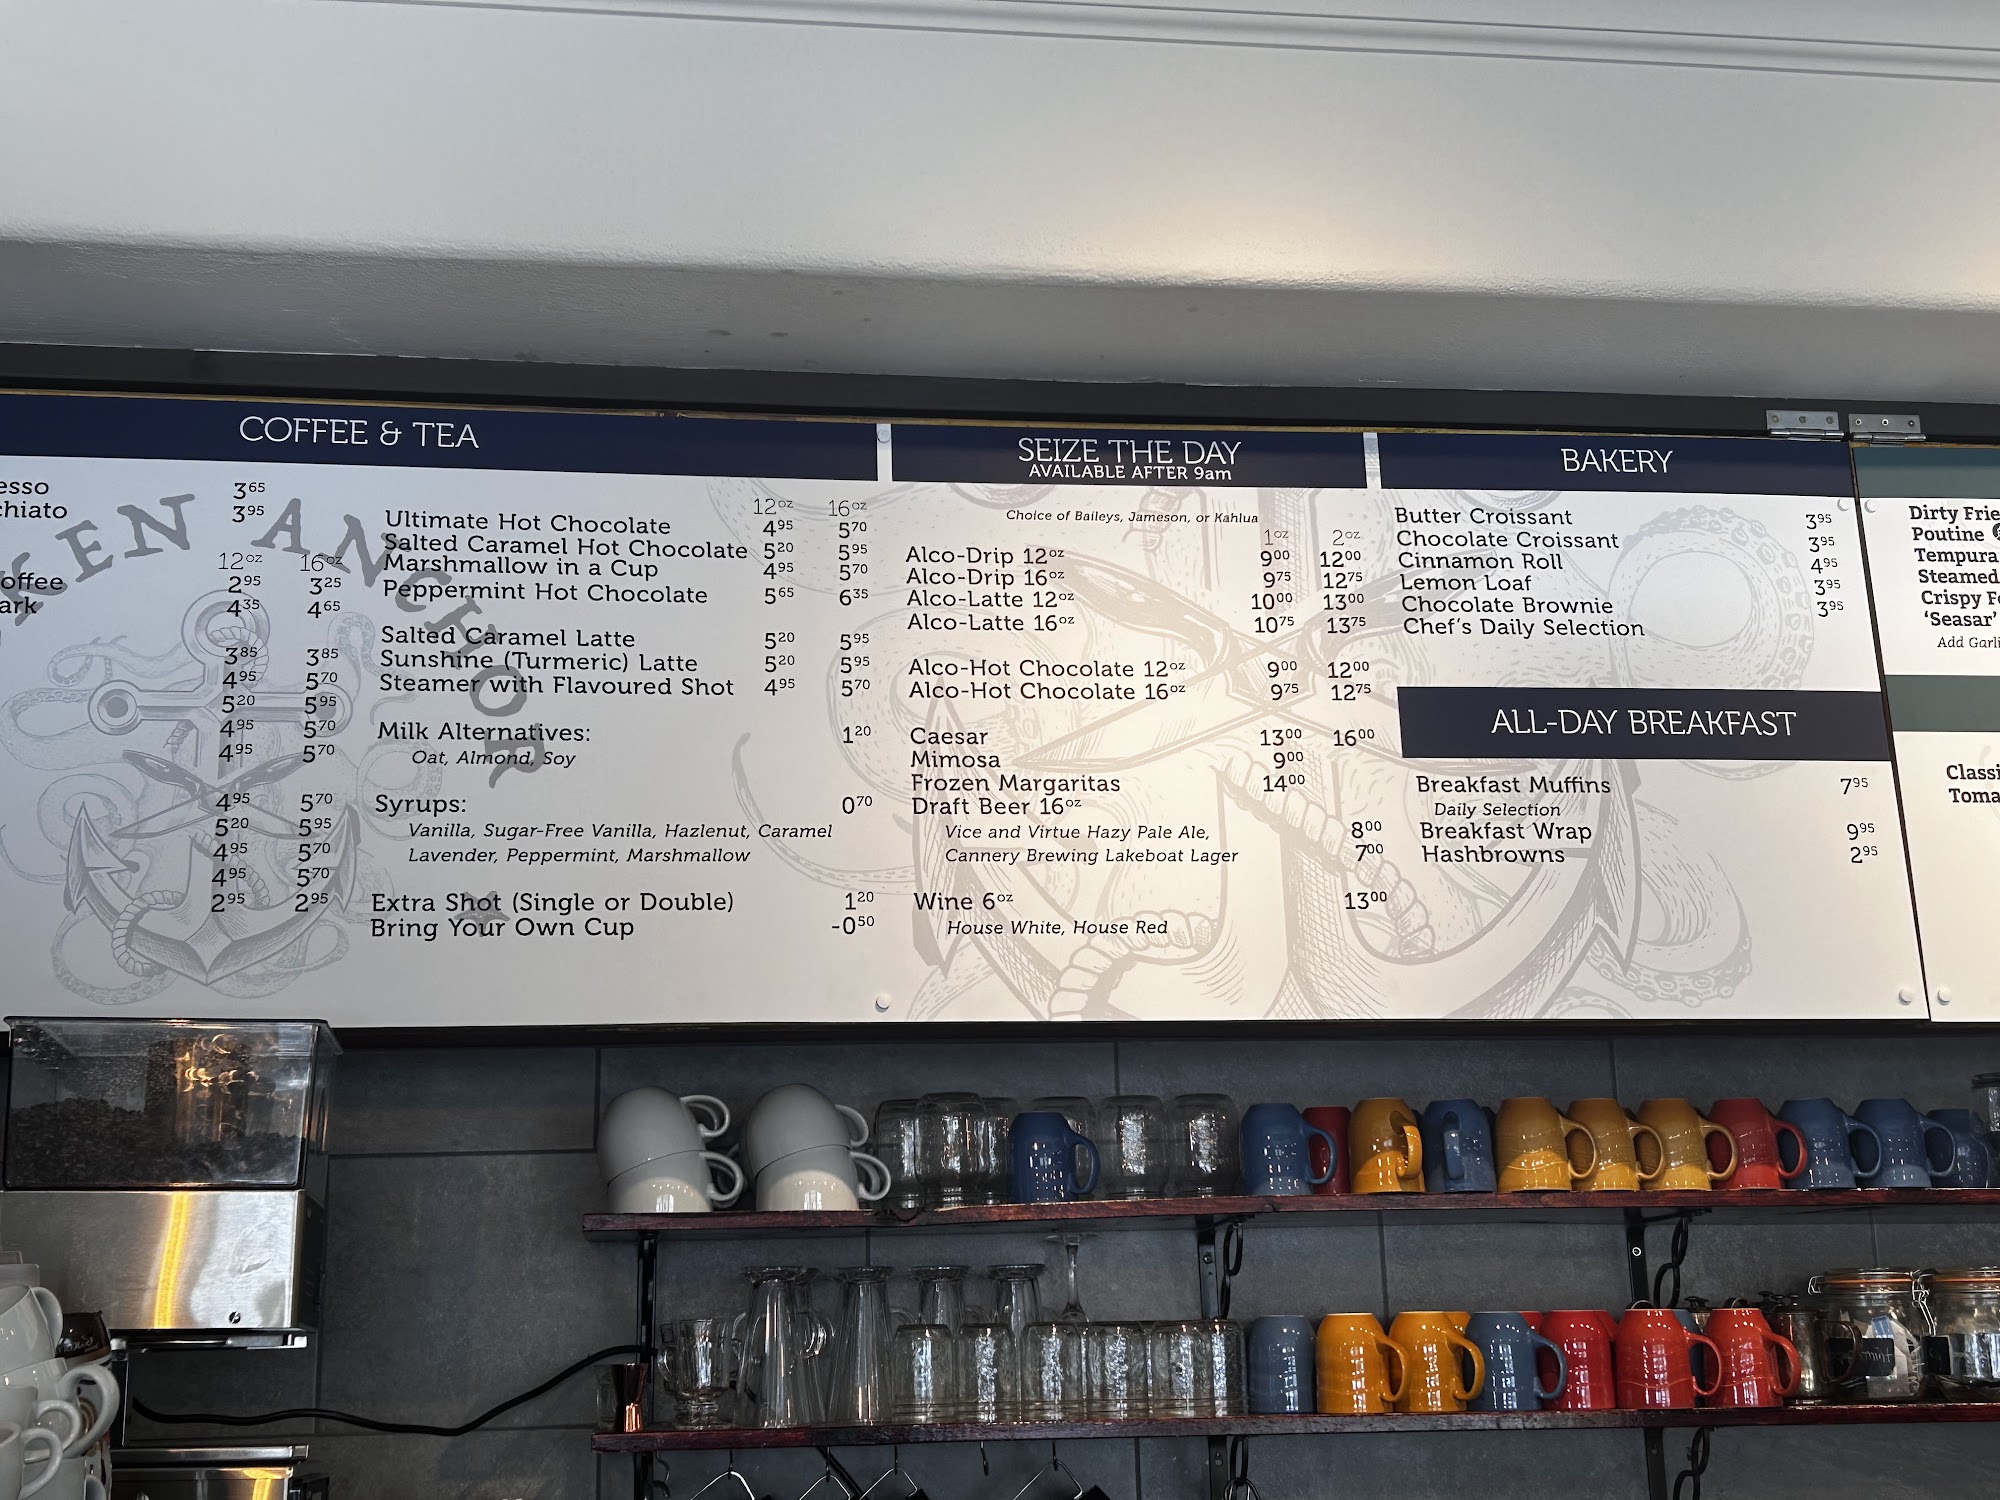 COFFEE & TEA
esso 3⁶⁵
chiato 3⁹⁵
KEN ANCHOR
12oz 16oz
offee 2⁹⁵ 3²⁵
ark 4³⁵ 4⁶⁵
3⁸⁵ 3⁸⁵
4⁹⁵ 5⁷⁰
5²⁰ 5⁹⁵
4⁹⁵ 5⁷⁰
4⁹⁵ 5⁷⁰
4⁹⁵ 5⁷⁰
5²⁰ 5⁹⁵
4⁹⁵ 5⁷⁰
4⁹⁵ 5⁷⁰
2⁹⁵ 2⁹⁵
12oz 16oz
Ultimate Hot Chocolate 4⁹⁵ 5⁷⁰
Salted Caramel Hot Chocolate 5²⁰ 5⁹⁵
Marshmallow in a Cup 4⁹⁵ 5⁷⁰
Peppermint Hot Chocolate 5⁶⁵ 6³⁵
Salted Caramel Latte 5²⁰ 5⁹⁵
Sunshine (Turmeric) Latte 5²⁰ 5⁹⁵
Steamer with Flavoured Shot 4⁹⁵ 5⁷⁰
Milk Alternatives: 1²⁰
Oat, Almond, Soy
Syrups: 0⁷⁰
Vanilla, Sugar-Free Vanilla, Hazlenut, Caramel
Lavender, Peppermint, Marshmallow
Extra Shot (Single or Double) 1²⁰
Bring Your Own Cup -0⁵⁰
SEIZE THE DAY
AVAILABLE AFTER 9am
Choice of Baileys, Jameson, or Kahlua
1oz 2oz
Alco-Drip 12oz 9⁰⁰ 12⁰⁰
Alco-Drip 16oz 9⁷⁵ 12⁷⁵
Alco-Latte 12oz 10⁰⁰ 13⁰⁰
Alco-Latte 16oz 10⁷⁵ 13⁷⁵
Alco-Hot Chocolate 12oz 9⁰⁰ 12⁰⁰
Alco-Hot Chocolate 16oz 9⁷⁵ 12⁷⁵
Caesar 13⁰⁰ 16⁰⁰
Mimosa 9⁰⁰
Frozen Margaritas 14⁰⁰
Draft Beer 16oz
Vice and Virtue Hazy Pale Ale, 8⁰⁰
Cannery Brewing Lakeboat Lager 7⁰⁰
Wine 6oz 13⁰⁰
House White, House Red
BAKERY
Butter Croissant 3⁹⁵
Chocolate Croissant 3⁹⁵
Cinnamon Roll 4⁹⁵
Lemon Loaf 3⁹⁵
Chocolate Brownie 3⁹⁵
Chef's Daily Selection
ALL-DAY BREAKFAST
Breakfast Muffins 7⁹⁵
Daily Selection
Breakfast Wrap 9⁹⁵
Hashbrowns 2⁹⁵
Dirty Frie
Poutine
Tempura
Steamed
Crispy F
'Seasar'
Add Garli
Classi
Toma